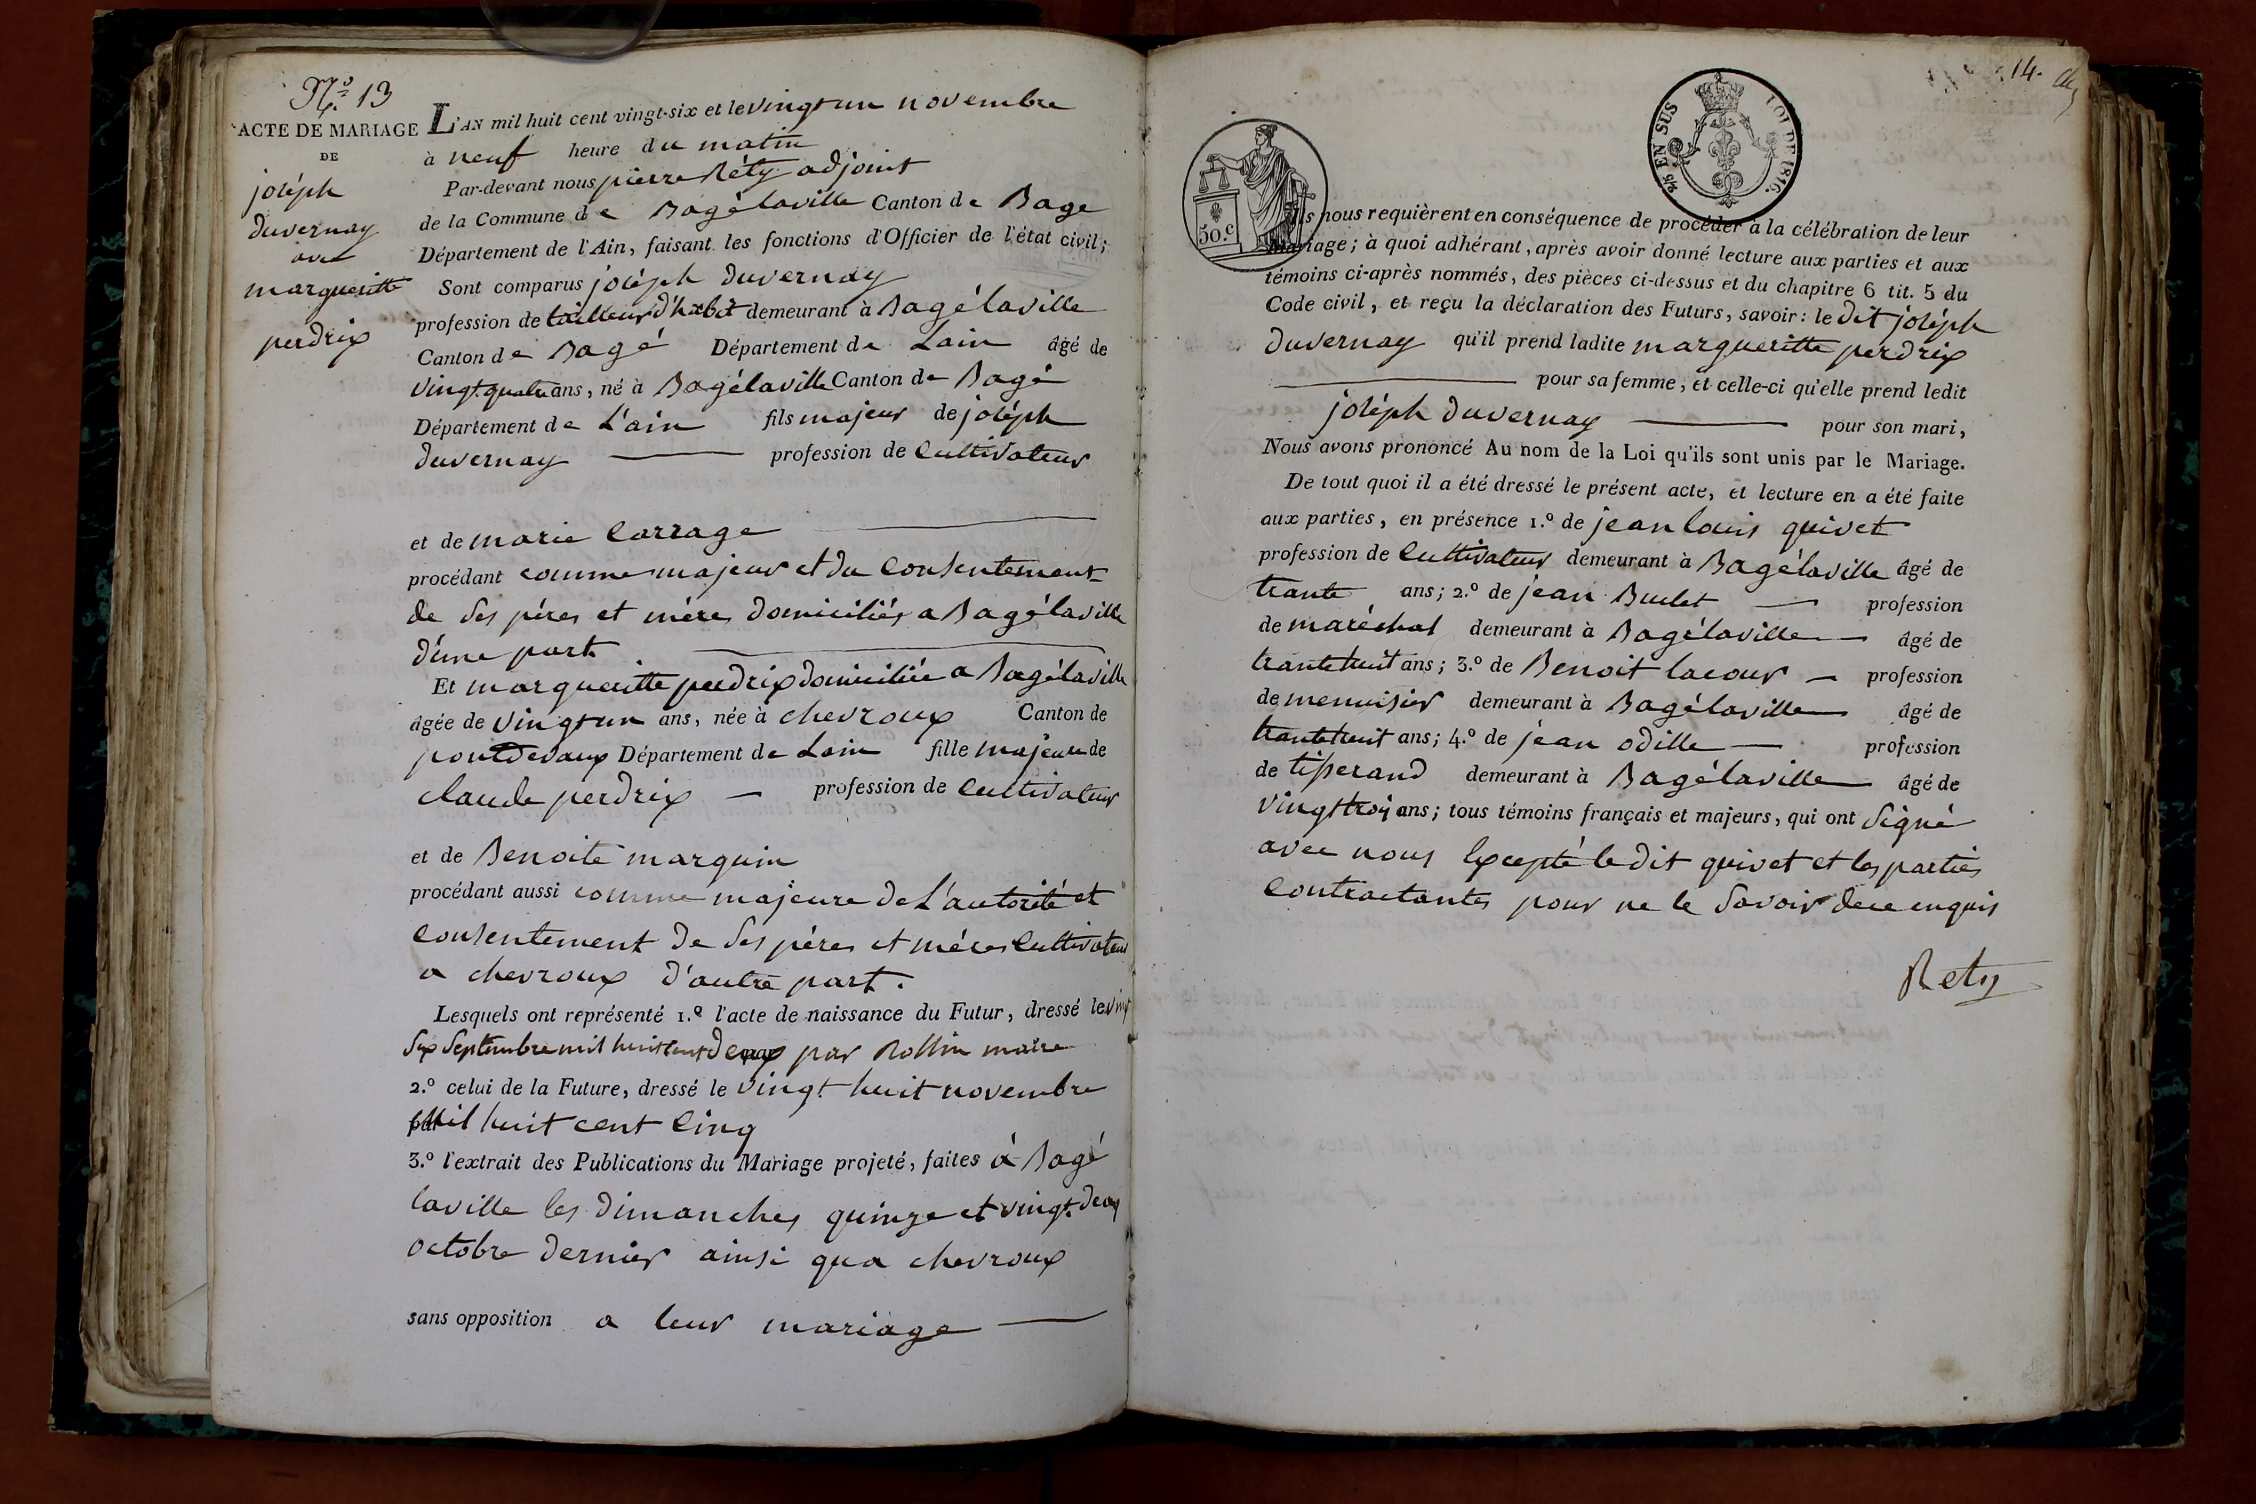 N.º 13
ACTE DE MARIAGE
DE
joséph
duvernay
avec
margueritte
perdrix
L'AN mil huit cent vingt-six et le vingt un novembre
à neuf heure du matin
Par-devant nous pierre Réty adjoint
de la Commune de Bagélaville Canton de Bage
Département de l'Ain, faisant les fonctions d'Officier de l'état civil;
Sont comparus joséph duvernay
profession de tailleur d'habit demeurant à Bagélaville
Canton de Bagé Département de Lain âgé de
vingt.quatre ans, né à Bagélaville Canton de Bagé
Département de L'ain fils majeur de joséph
duvernay profession de Cultivateur
et de marie Carrage
procédant comme majeur et du Consentement
de ses péres et mére domiciliés a Bagélaville
d'une part.
Et margueritte perdrix domiciliée a Bagélaville
âgée de vingt un ans, née à chevroux Canton de
pontdevaux Département de Lain fille majeure de
claude perdrix profession de Cultivateur
et de Benoite marguin
procédant aussi comme majeure de L'autorité et
Consentement de ses péres et méres Cultivateur
a chevroux d'autre part.
Lesquels ont représenté 1.º l'acte de naissance du Futur, dressé le vingt
six septembre mil huit cent deux par Rollin maire
2.º celui de la Future, dressé le vingt huit novembre
mil huit cent Cinq
3.º l'extrait des Publications du Mariage projeté, faites à Bagé
laville les dimanches quinze et vingt.deux
octobre dernier ainsi qua chevroux
sans opposition a leur mariage
14.
2/5 EN SUS
LOI DE 1816.
50.c
Ils nous requièrent en conséquence de procéder à la célébration de leur
mariage; à quoi adhérant, après avoir donné lecture aux parties et aux
témoins ci-après nommés, des pièces ci-dessus et du chapitre 6 tit. 5 du
Code civil, et reçu la déclaration des Futurs, savoir: le dit joséph
duvernay qu'il prend ladite margueritte perdrix
pour sa femme, et celle-ci qu'elle prend ledit
joséph duvernay pour son mari,
Nous avons prononcé Au nom de la Loi qu'ils sont unis par le Mariage.
De tout quoi il a été dressé le présent acte, et lecture en a été faite
aux parties, en présence 1.º de jean louis quivet
profession de Cultivateur demeurant à Bagélaville âgé de
trante ans; 2.º de jean Buclet profession
de maréchal demeurant à Bagélaville âgé de
trantehuit ans; 3.º de Benoit lacour profession
de menuisier demeurant à Bagélaville âgé de
trantehuit ans; 4.º de jéan odille profession
de tisserand demeurant à Bagélaville âgé de
vingttrois ans; tous témoins français et majeurs, qui ont signé
avec nous Excepté le dit quivet et les parties
Contractantes pour ne le savoir de ce enquis
Rety